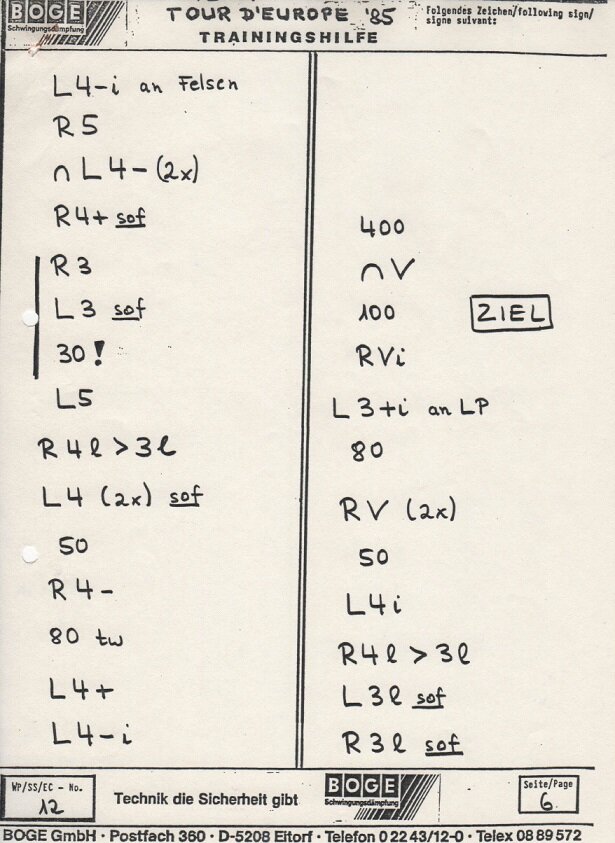 BOGE
Schwingungsdämpfung
TOUR D'EUROPE '85
TRAININGSHILFE
Folgendes Zeichen/following sign/
signe suivant:
L4-i an Felsen
R5
∩ L4- (2x)
R4+ sof
R3
L3 sof
30!
L5
R4l>3l
L4 (2x) sof
50
R4-
80 tw
L4+
L4-i
400
∩V
100 ZIEL
RVi
L3+i an LP
80
RV (2x)
50
L4i
R4l>3l
L3l sof
R3l sof
WP/SS/EC - No.
12
Technik die Sicherheit gibt
BOGE
Schwingungsdämpfung
Seite/Page
6
BOGE GmbH · Postfach 360 · D-5208 Eitorf · Telefon 0 22 43/12-0 · Telex 08 89 572